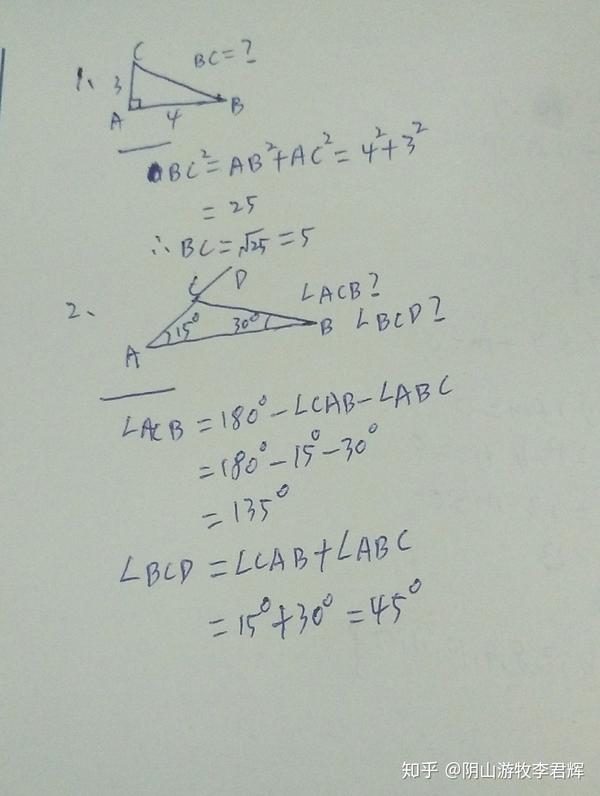 1、
C
BC=?
3
A
4
B
BC²=AB²+AC²=4²+3²
=25
∴BC=√25=5
2、
C
D
∠ACB?
15°
30°
B
∠BCD?
A
∠ACB=180°-∠CAB-∠ABC
=180°-15°-30°
=135°
∠BCD=∠CAB+∠ABC
=15°+30°=45°
知乎 @阴山游牧李君辉